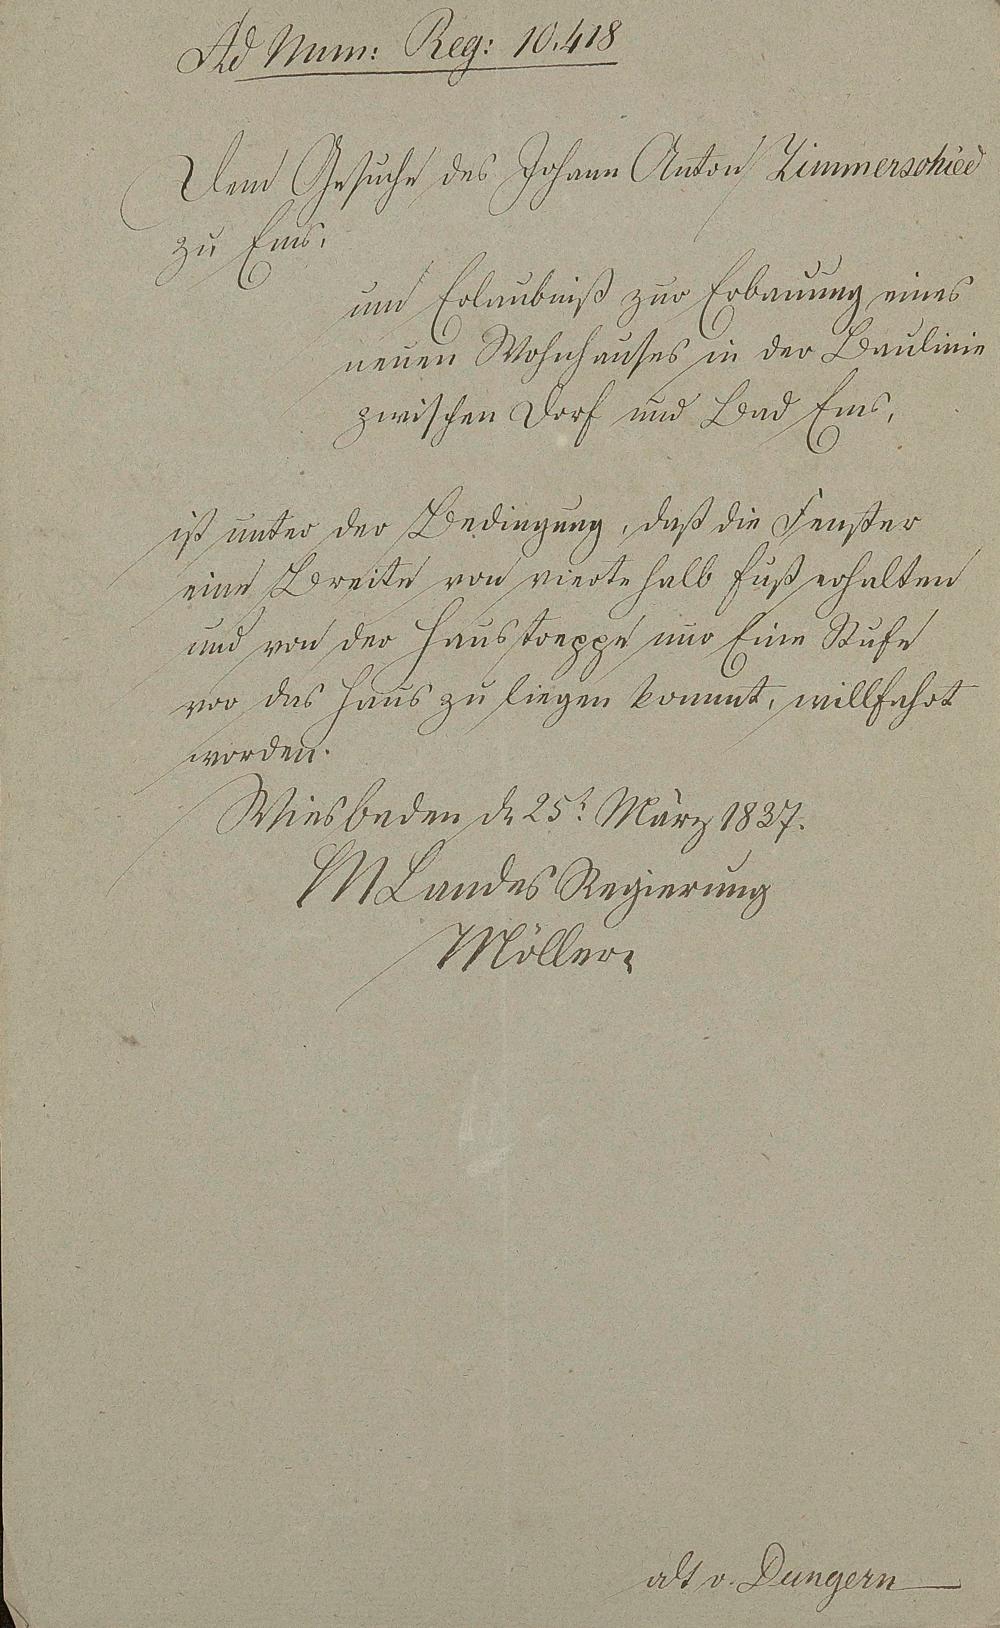 Ad Num: Reg: 10.418
Dem Gesuche des Johann Anton Zimmerschied
zu Ems,
um Erlaubniß zur Erbauung eines
neuen Wohnhauses in der Baulinie
zwischen Dorf und Bad Ems,
ist unter der Bedingung, daß die Fenster
eine Breite von vierte halb Fuß erhalten
und von der Haustreppe nur Eine Stufe
vor das Haus zu liegen kommt, willfahrt
worden.
Wiesbaden d. 25t. März 1837.
Landes Regierung
Möller
v. Dungern